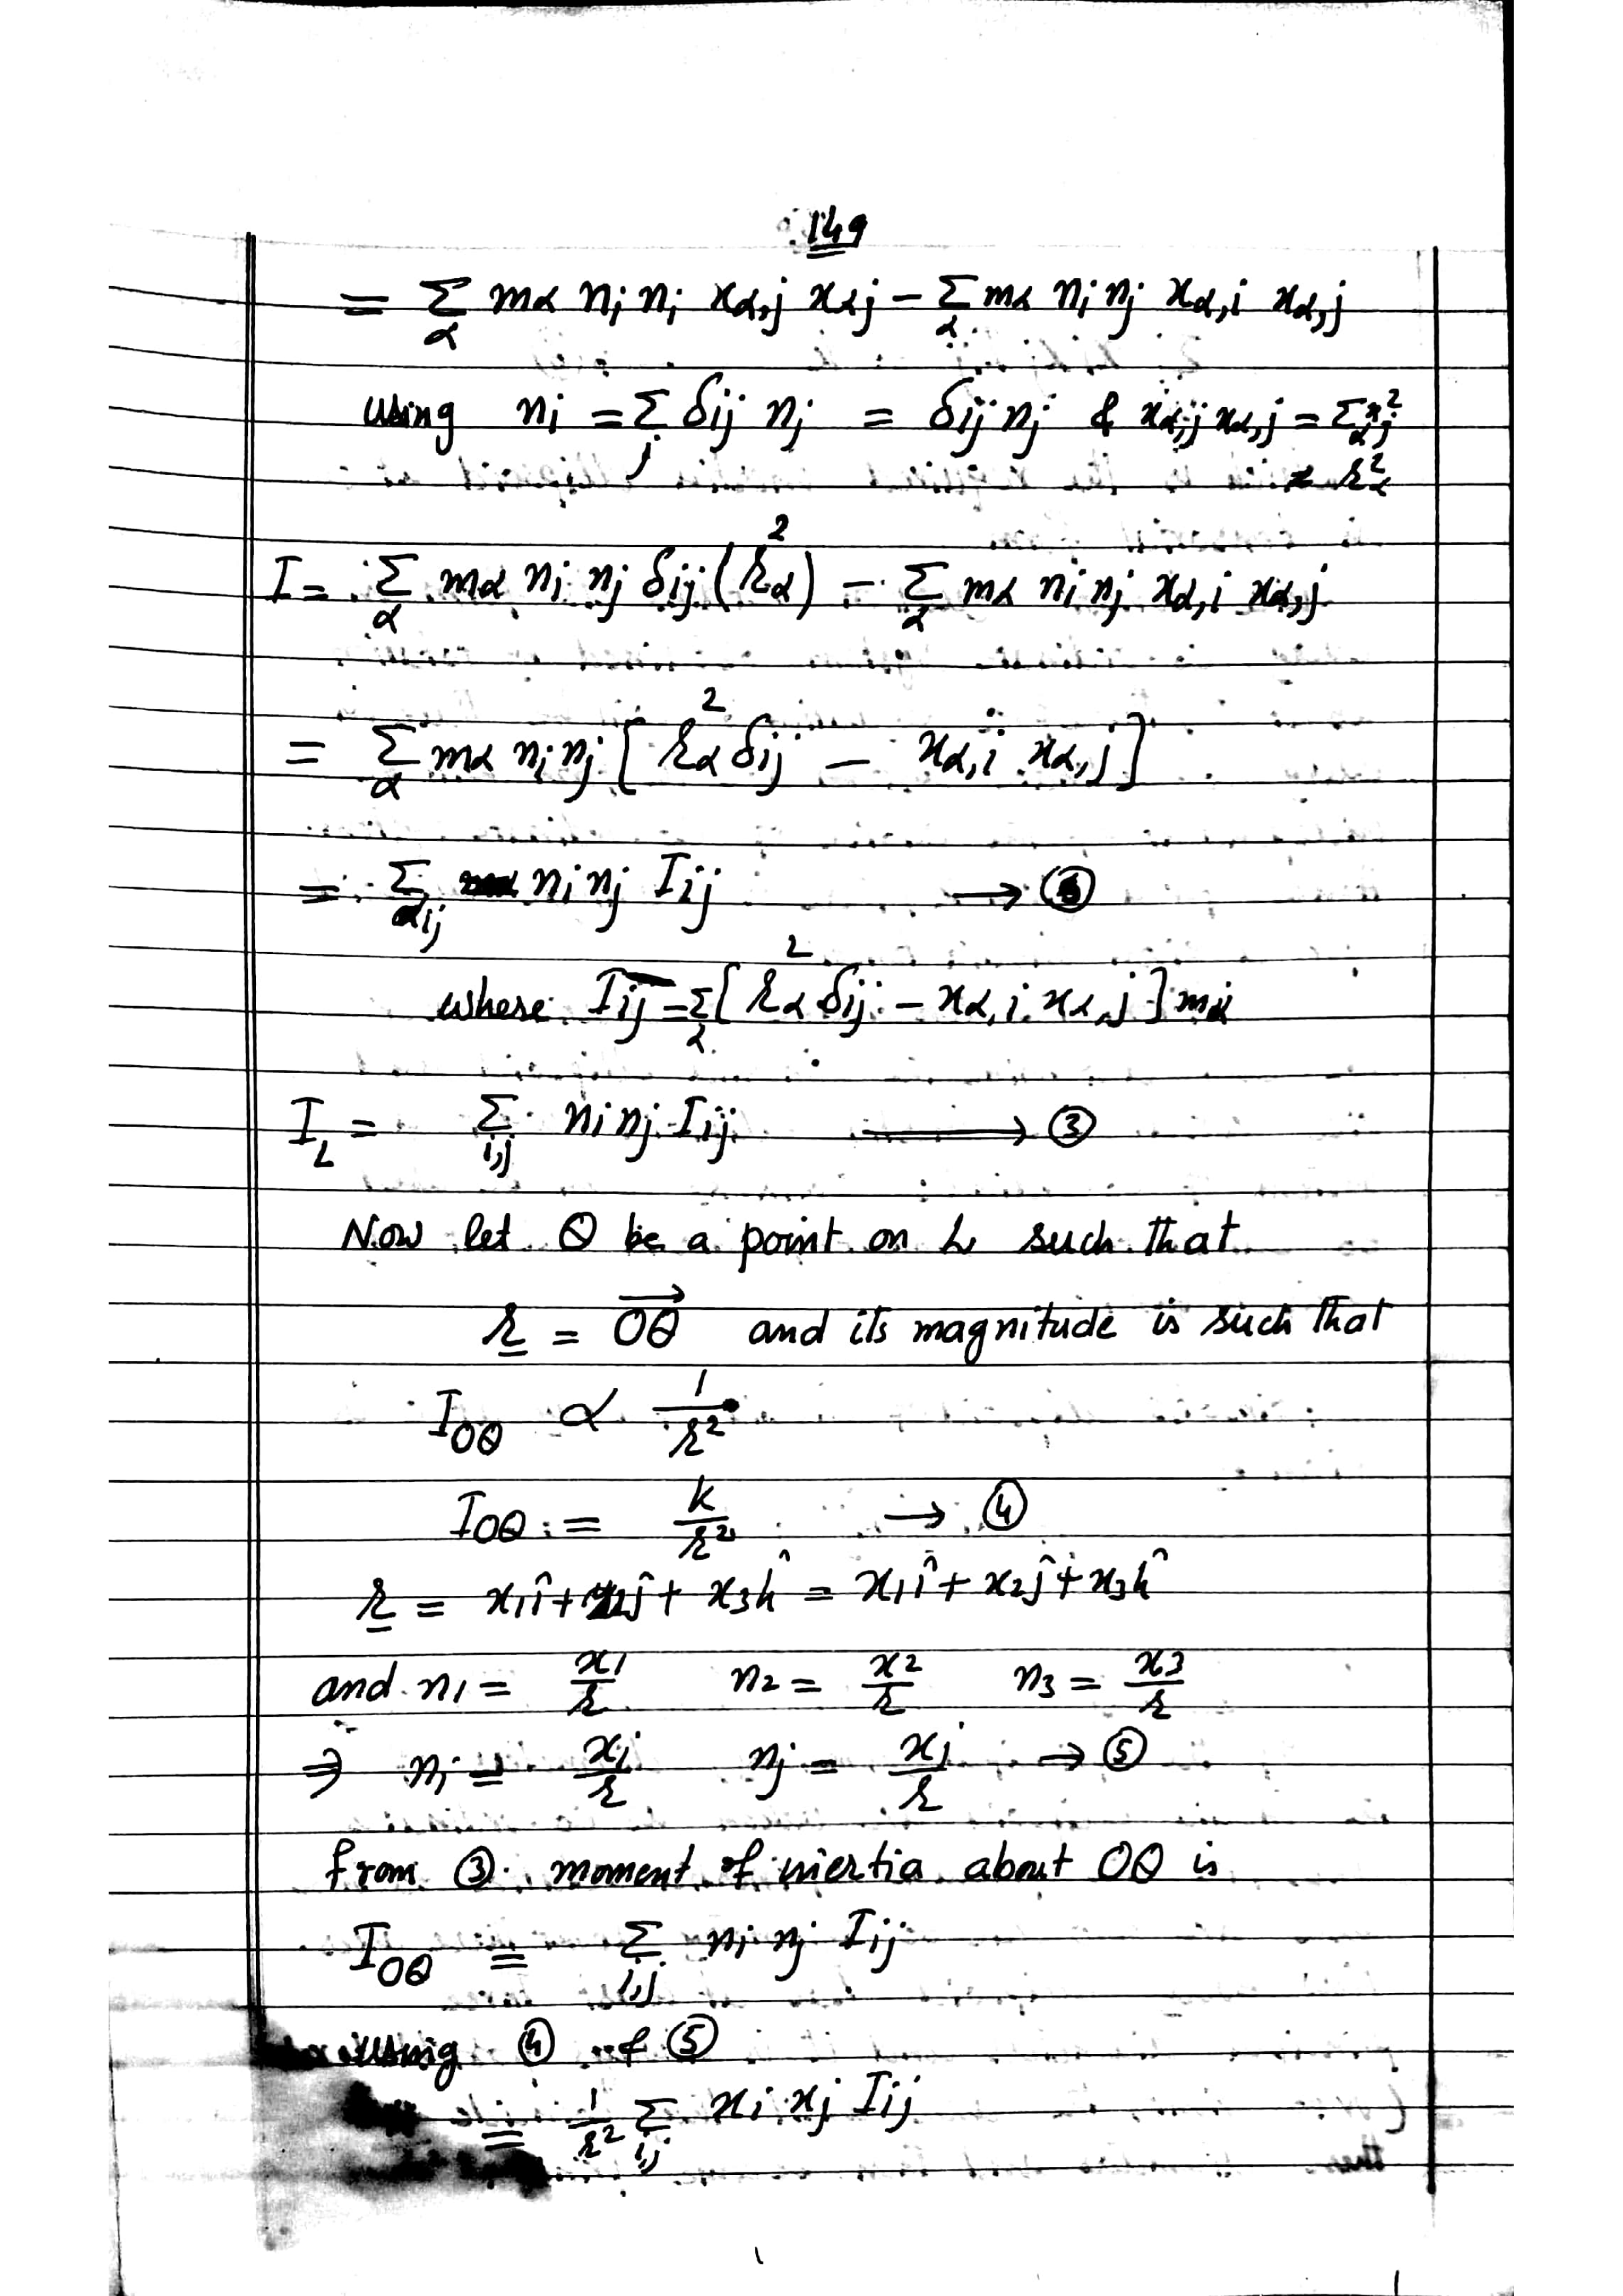 149
= Σ_α mα ni ni xα,j xαj − Σ_α mα ni nj xα,i xα,j
using ni = Σ_j δij nj = δij nj & xα,j xα,j = Σ x²αj
= r²α
I = Σ_α mα ni nj δij (rα)² − Σ_α mα ni nj xα,i xα,j
= Σ_α mα ni nj [ r²α δij − xα,i xα,j ]
= Σ_αij ni nj Iij →
where Iij = Σ_α [ r²α δij − xα,i xα,j ] mα
I_L = Σ_i,j ni nj Iij → ③
Now let Q be a point on L such that
r = OQ⃗ and its magnitude is such that
I_OQ ∝ 1/r²
I_OQ = k/r² → ④
r = x1î + x2ĵ + x3k̂ = x1î + x2ĵ + x3k̂
and n1 = x1/r n2 = x2/r n3 = x3/r
⇒ ni = xi/r nj = xj/r → ⑤
from ③ moment of inertia about OQ is
I_OQ = Σ_i,j ni nj Iij
using ④ & ⑤
= 1/r² Σ_i,j xi xj Iij